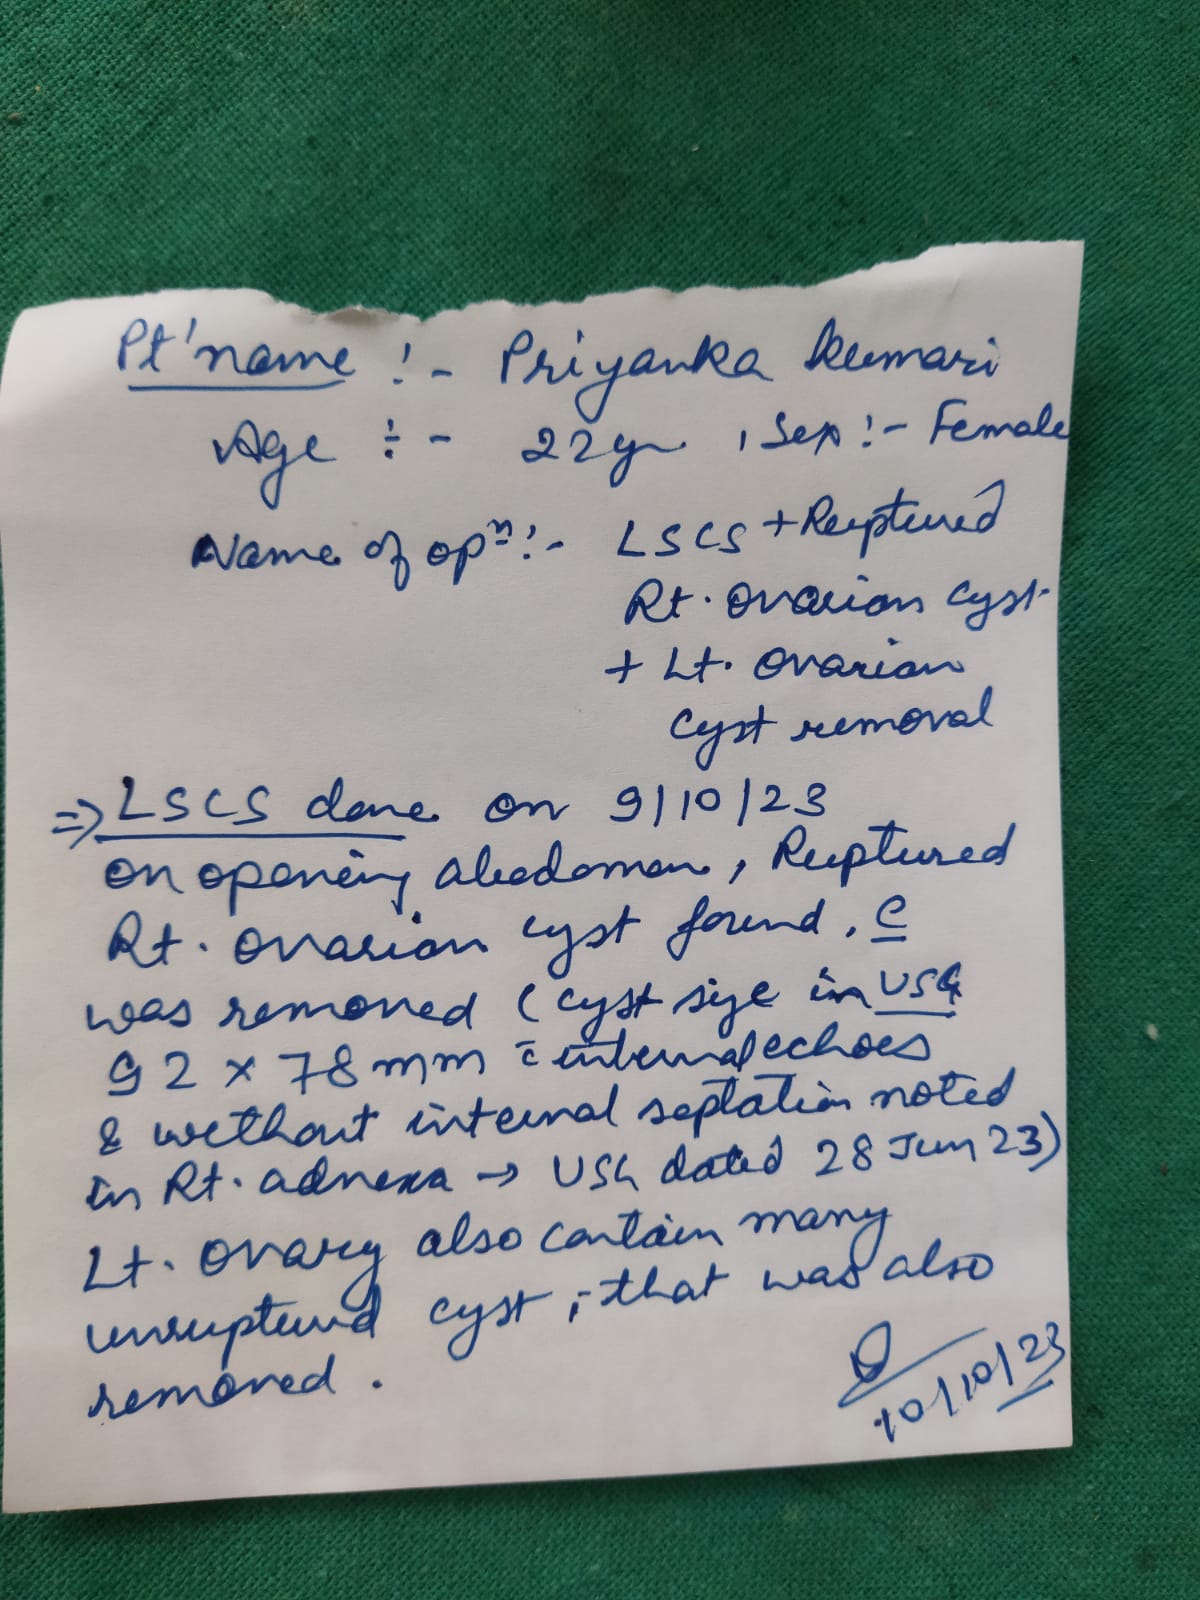 Pt' name :- Priyanka Kumari
Age :- 22yr , Sex :- Female
Name of opⁿ :- LSCS + Ruptured
Rt. Ovarian Cyst
+ Lt. Ovarian
Cyst removal
=> LSCS done on 9/10/23
on opening abdomen, Ruptured
Rt. ovarian cyst found,
was removed (cyst size in USG
92 x 78 mm c̄ internal echoes
& without internal septation noted
in Rt. adnexa → USG dated 28 Jun 23)
Lt. ovary also contain many
unruptured cyst, that was also
removed.
10/10/23